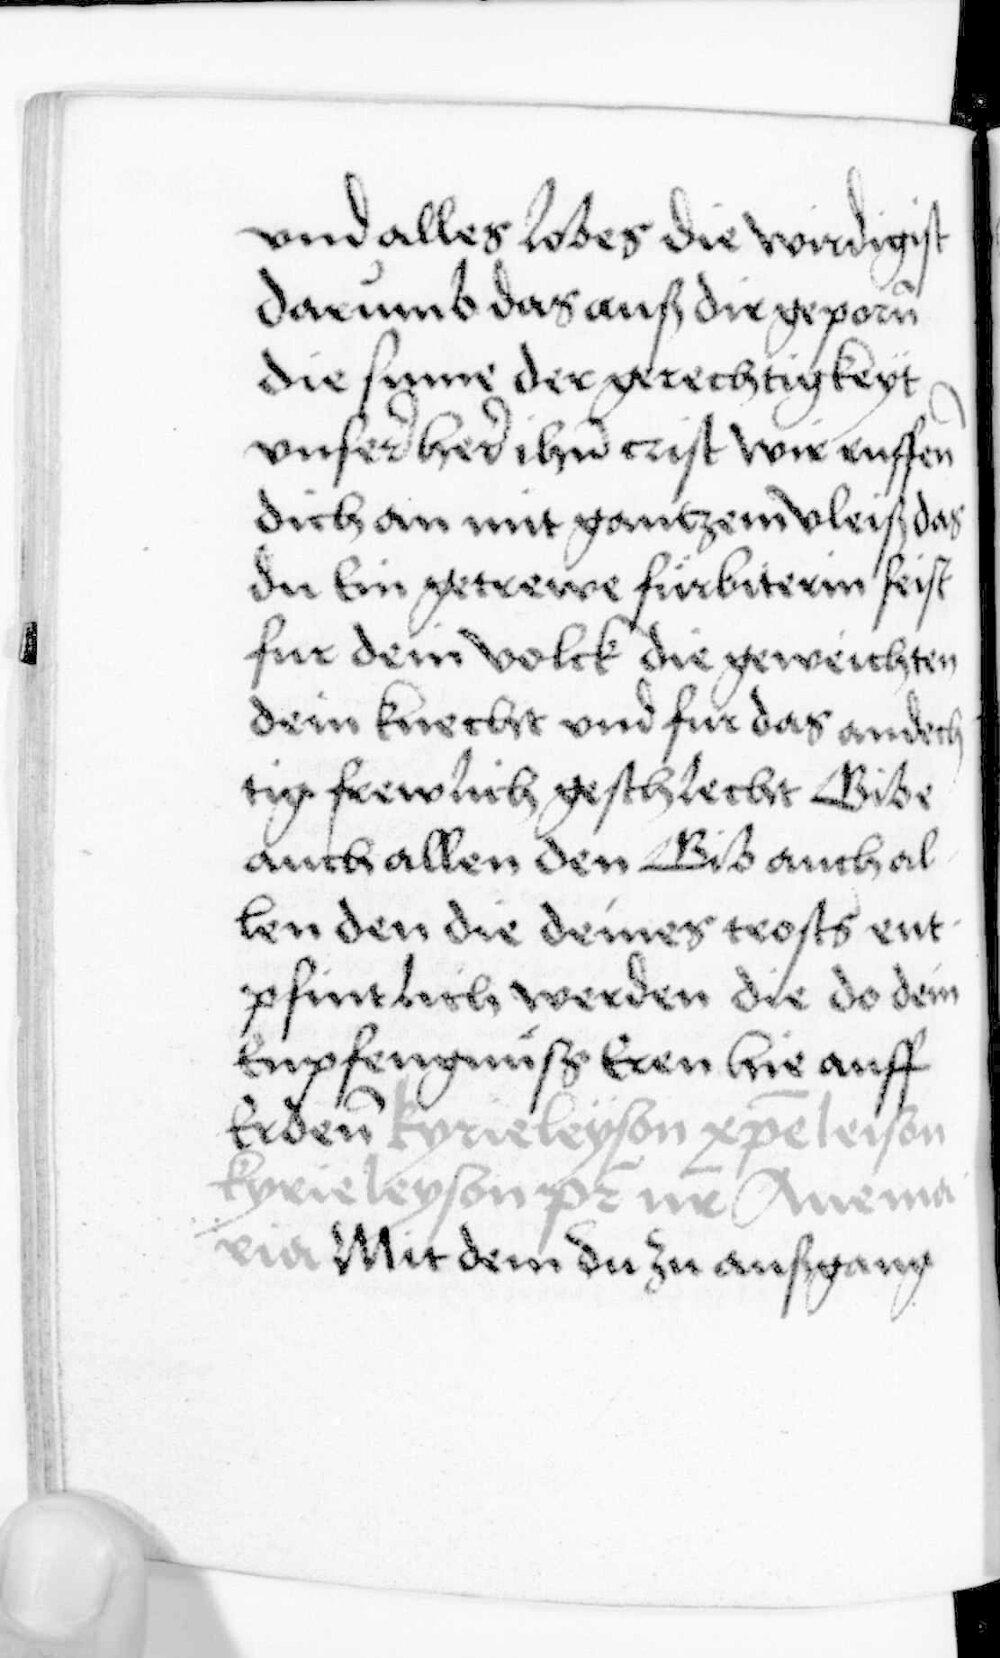 vnd alles lobes die wirdigist
darumb das auß dir geporn̄
die sunne der gerechtigkeyt
vnser her ihū crist Wir ruffen
dich an mit gantzem vleiß das
du Ein getrewe fürbiterin seist
fur dein volck die geweichten
dein knecht vnd fur das andech
tig frewlich geschlecht Bibe
auch allen den Bib auch al
len den die deines trosts ent
pfintlich werden die do dein
Enpfengnuß Eren hie auff
Erden̄ kyrieleyson xp̄eleison
kyrieleyson pr̄ nr̄ Aue ma
ria Mit dem du zu außgang